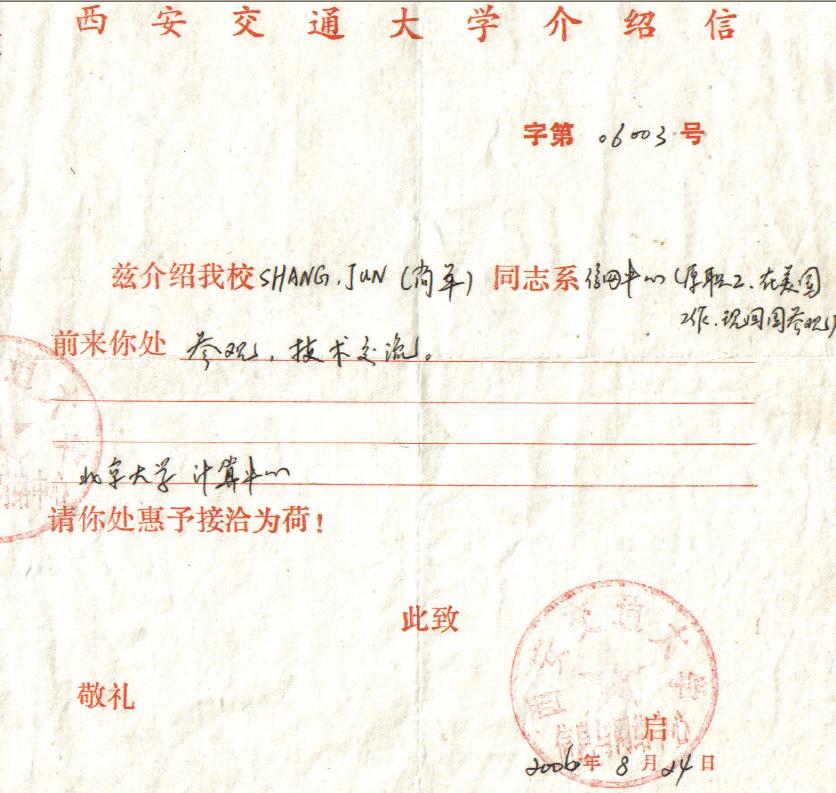 西安交通大学介绍信
字第 06003 号
兹介绍我校SHANG, JUN (尚军) 同志系信网中心 (原职工、在美国
工作、现回国参观)
前来你处 参观，技术交流。
北京大学 计算中心
请你处惠予接洽为荷！
此致
敬礼
西安交通大学
信息与网络中心
启
2006年 8 月 24 日